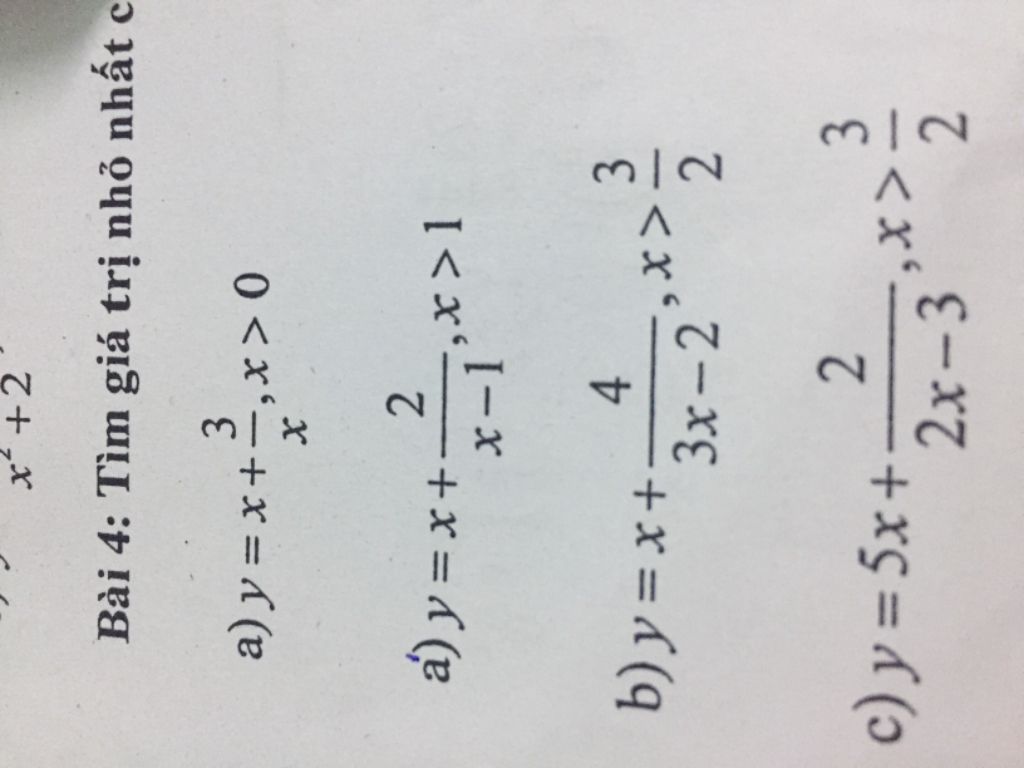 x² + 2
Bài 4: Tìm giá trị nhỏ nhất c
a) y = x + 3/x, x > 0
á) y = x + 2/(x − 1), x > 1
b) y = x + 4/(3x − 2), x > 3/2
c) y = 5x + 2/(2x − 3), x > 3/2